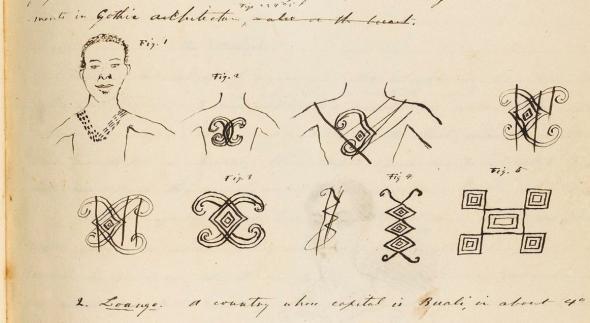 ments in Gothic architecture, ~~~~ on the breast.
Fig. 1
Fig. 2
Fig. 3
Fig. 4
Fig. 5
2. Loango. A country whose capital is Buali, in about 4°